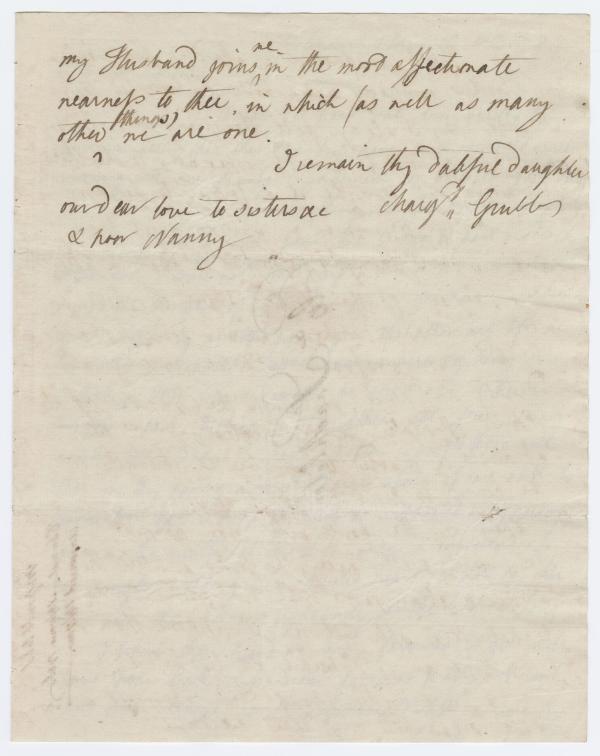 my Husband joins me in the most affectionate
nearness to thee, in which (as well as many
other things) we are one.
I remain thy dutiful daughter
our dear love to sisters &c Margt Grubb
& poor Nanny